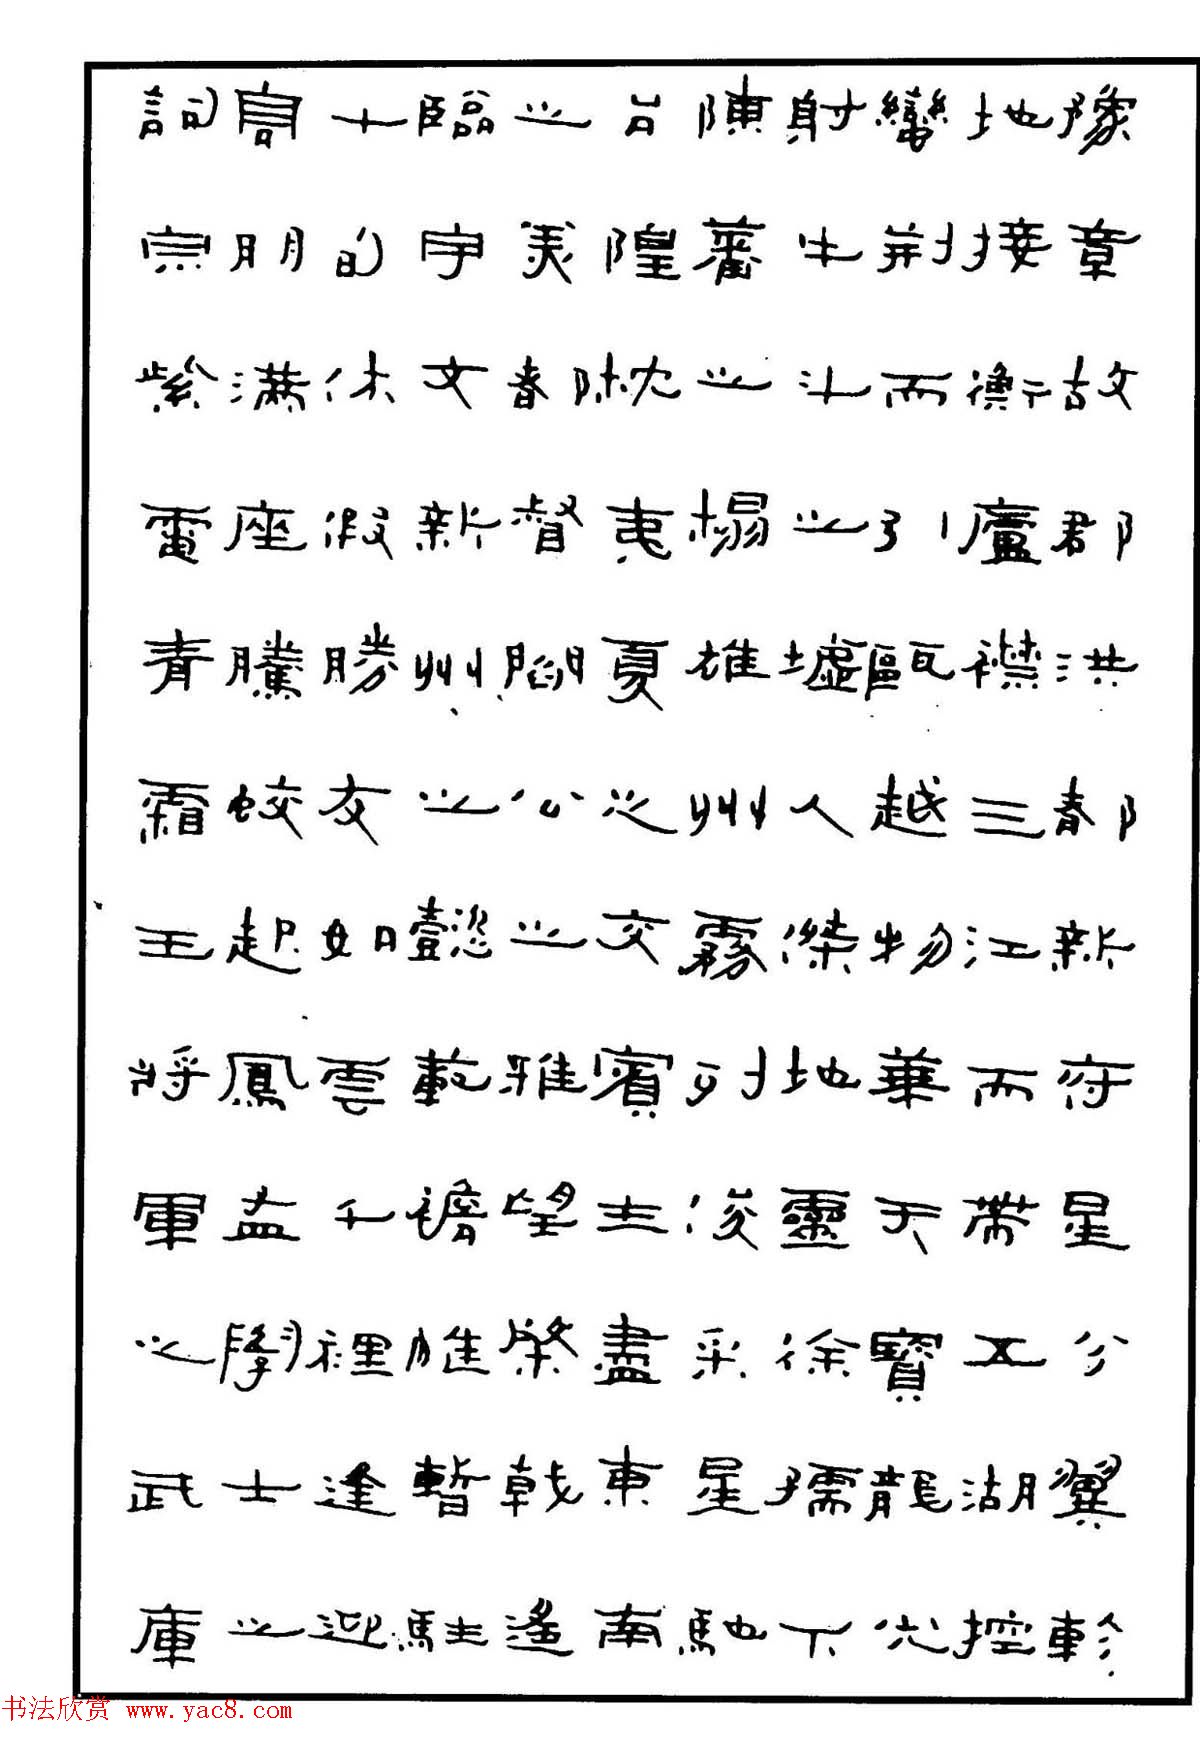 豫章故郡洪都新府星分翼軫
地接衡廬襟三江而帶五湖控
蠻荊而引甌越物華天寶龍光
射牛斗之墟人傑地靈徐孺下
陳蕃之榻雄州霧列俊采星馳
台隍枕夷夏之交賓主盡東南
之美都督閻公之雅望棨戟遙
臨宇文新州之懿載襜帷暫駐
十旬休假勝友如雲千里逢迎
高朋滿座騰蛟起鳳孟學士之
詞宗紫電青霜王將軍之武庫
书法欣赏 www.yac8.com